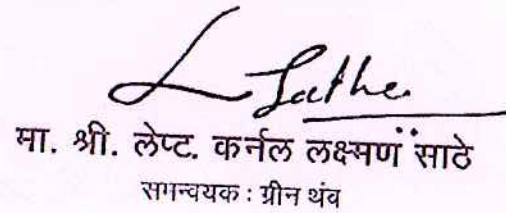 L Sathe
मा. श्री. लेप्ट. कर्नल लक्ष्मण साठे
समन्वयक : ग्रीन थंव